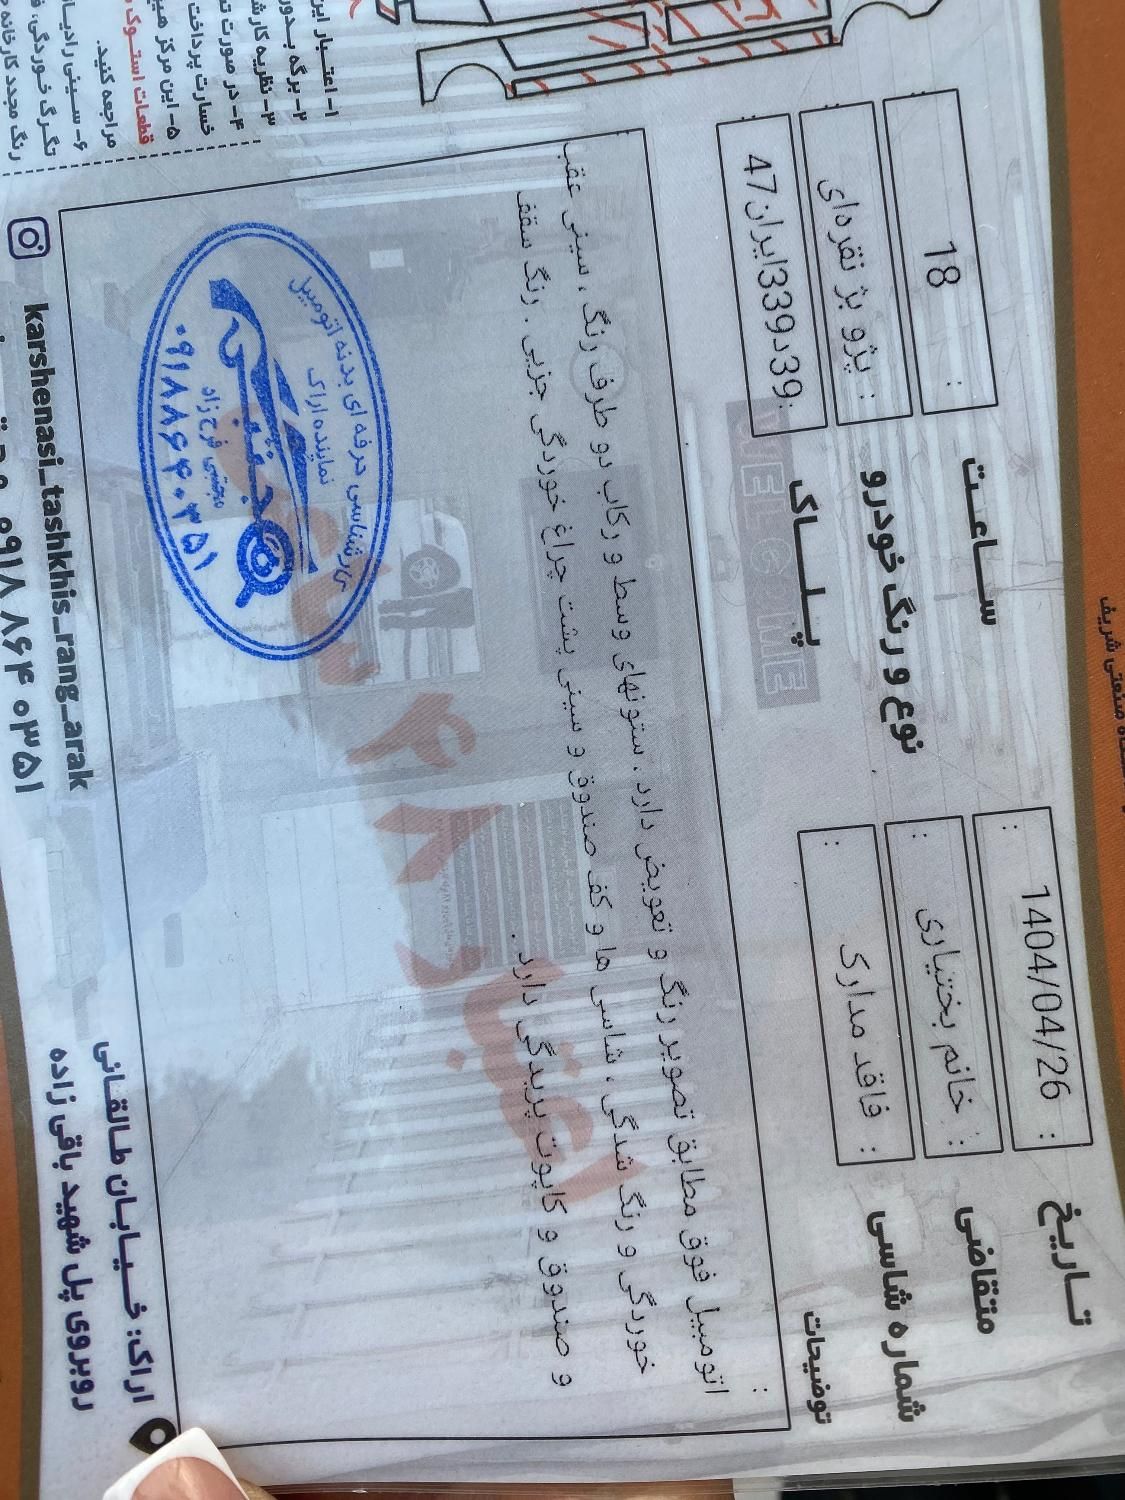 تاریخ : 1404/04/26 :
متقاضی : خانم بختیاری :
شماره شاسی : فاقد مدارک :
ساعت : 18
نوع و رنگ خودرو : پژو پژ نقره‌ای :
پلاک 39د339ایران47
توضیحات :
اتومبیل فوق مطابق تصویر رنگ و تعویض دارد ، ستونهای وسط و رکاب دو طرف رنگ ، سینی عقب
خوردگی و رنگ شدگی ، شاسی ها و کف صندوق و سینی پشت چراغ خوردگی جزیی . رنگ سقف
و صندوق و کاپوت پریدگی دارد .
کارشناسی حرفه ای بدنه اتومبیل
نماینده اراک
نجفی
مجتبی فرخ زاد
۰۹۱۸۸۶۴۰۳۵۱
اعتبار ۴۸ ساعت
WELCOME
اراک: خیابان طالقانی
روبروی پل شهید باقی زاده
karshenasi_tashkhis_rang_arak
۰۹۱۸ ۸۶۴ ۰۳۵۱
۱- اعتبار این
۲- برگه بدون
۳- نظریه کارش
۴- در صورت
خسارت پرداخت
۵- این مرکز
قطعات استوک
مراجعه کنید.
۶- سینی رادیا
تگرگ خوردگی،
رنگ مجدد کارخانه
صنعتی شریف